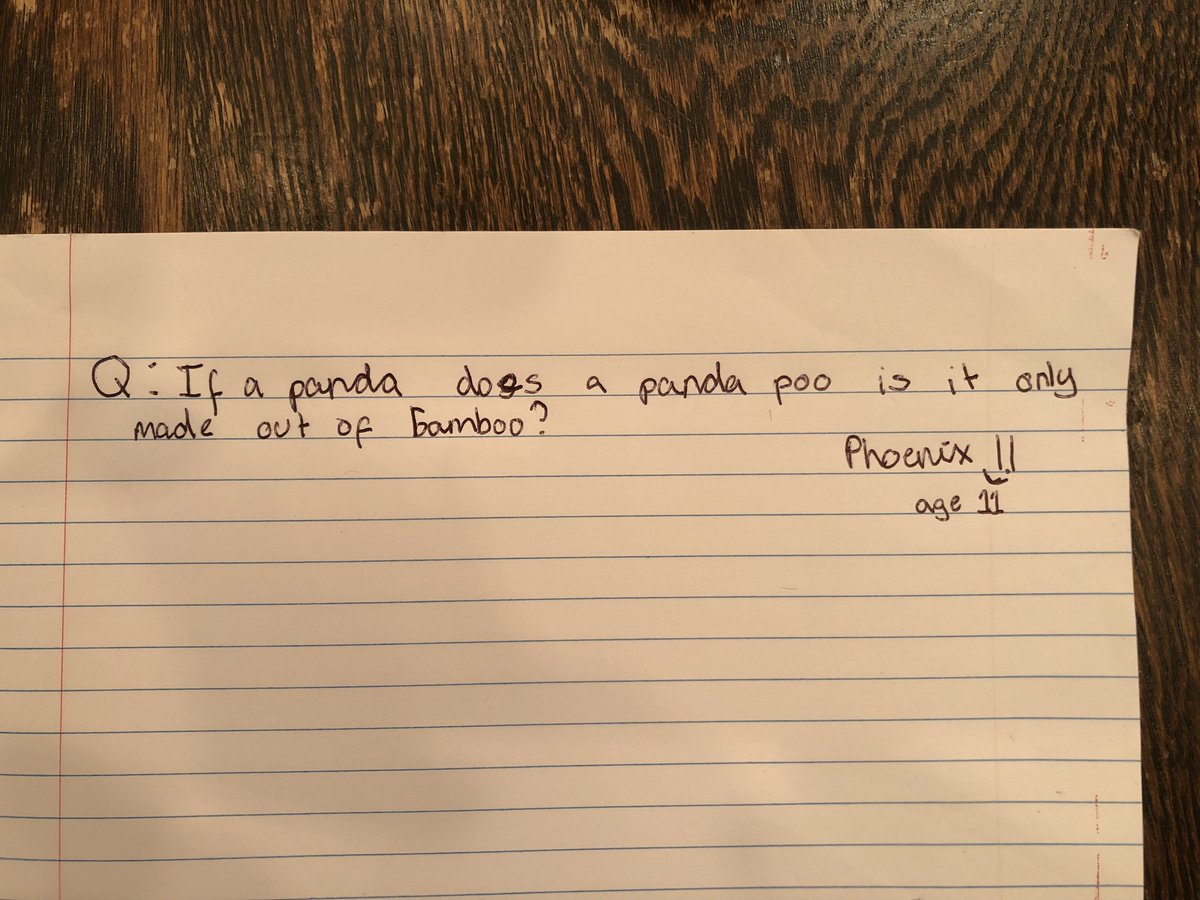 Q: If a panda does a panda poo is it only
made out of bamboo?
Phoenix !!
age 11